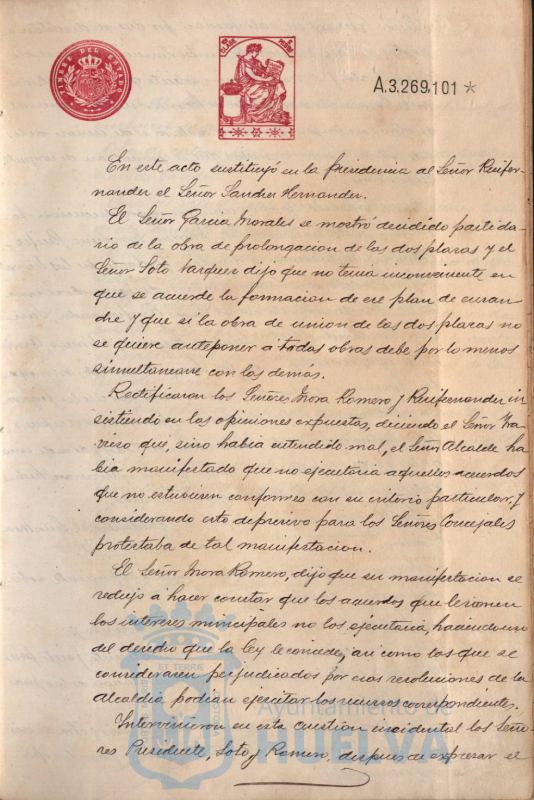 TIMBRE DEL ESTADO
A.3.269.101 *
En este acto sustituyó en la Presidencia al Señor Ruifer-
nandez el Señor Sanchez Hernandez.
El Señor Garcia Morales se mostró decidido partida-
rio de la obra de prolongacion de las dos plazas y el
Señor Soto Vazquez dijo que no tenia inconveniente en
que se acuerde la formacion de ese plan de ensan
che y que si la obra de union de las dos plazas no
se quiere anteponer á todas obras debe por lo menos
simultanearse con las demás.
Rectificaron los Señores Mora Romero y Ruifernandez in
sistiendo en las opiniones expuestas, diciendo el Señor Tra
vieso que, sino habia entendido mal, el Señor Alcalde ha
bia manifestado que no ejecutaria aquellos acuerdos
que no estuviesen conformes con su criterio particular, y
considerando esto depresivo para los Señores Concejales
protestaba de tal manifestacion.
El Señor Mora Romero, dijo que su manifestacion se
redujo á hacer constar que los acuerdos que lesionen
los intereses municipales no los ejecutaria, haciendo uso
del derecho que la ley le concede, asi como los que se
consideraren perjudicados por esas resoluciones de la
Alcaldia podian ejecitar los recursos correspondientes.
Intervinieron en esta cuestion incidental los Seño-
res Presidente, Soto y Romero, despues de expresar el
Ayuntamiento de
HUELVA